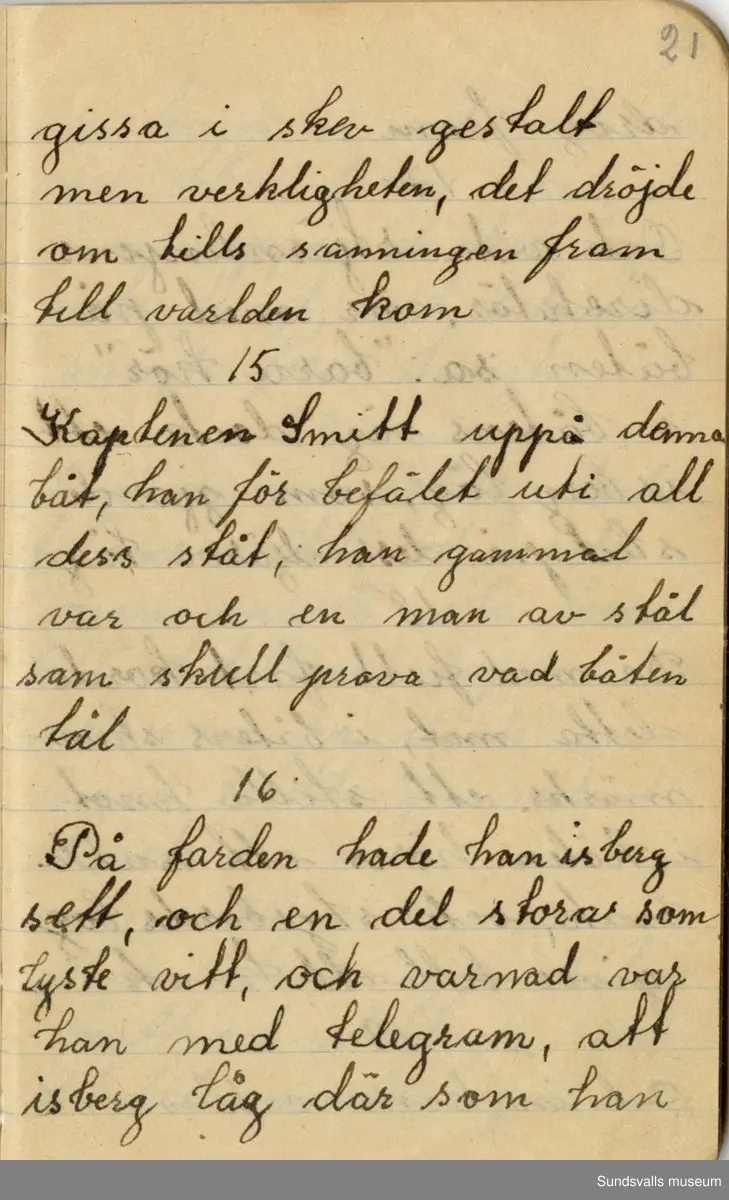 21
gissa i skev gestalt
men verkligheten, det dröjde
om tills sanningen fram
till varlden kom
15
Kaptenen Smitt uppå denna
båt, han för befälet uti all
dess ståt, han gammal
var och en man av stål
sam skull prova vad båten
tål
16
På farden hade han isberg
sett, och en del stora som
lyste vitt, och varnad var
han med telegram, att
isberg låg där som han
Sundsvalls museum